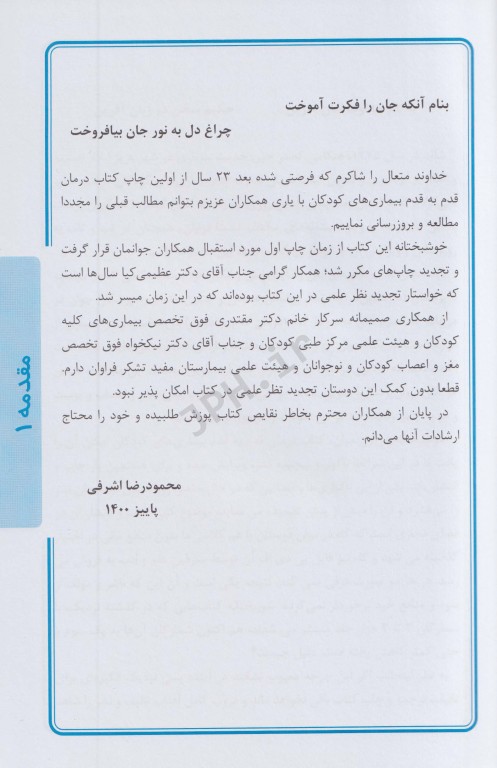 بنام آنکه جان را فکرت آموخت
چراغ دل به نور جان بیافروخت
خداوند متعال را شاکرم که فرصتی شده بعد ۲۳ سال از اولین چاپ کتاب درمان
قدم به قدم بیماری‌های کودکان با یاری همکاران عزیزم بتوانم مطالب قبلی را مجددا
مطالعه و بروزرسانی نماییم.
خوشبختانه این کتاب از زمان چاپ اول مورد استقبال همکاران جوانمان قرار گرفت
و تجدید چاپ‌های مکرر شد؛ همکار گرامی جناب آقای دکتر عظیمی‌کیا سال‌ها است
که خواستار تجدید نظر علمی در این کتاب بوده‌اند که در این زمان میسر شد.
از همکاری صمیمانه سرکار خانم دکتر مقتدری فوق تخصص بیماری‌های کلیه
کودکان و هیئت علمی مرکز طبی کودکان و جناب آقای دکتر نیکخواه فوق تخصص
مغز و اعصاب کودکان و نوجوانان و هیئت علمی بیمارستان مفید تشکر فراوان دارم.
قطعا بدون کمک این دوستان تجدید نظر علمی در کتاب امکان پذیر نبود.
در پایان از همکاران محترم بخاطر نقایص کتاب پوزش طلبیده و خود را محتاج
ارشادات آنها می‌دانم.
محمودرضا اشرفی
پاییز ۱۴۰۰
مقدمه ۱
JPH.ir